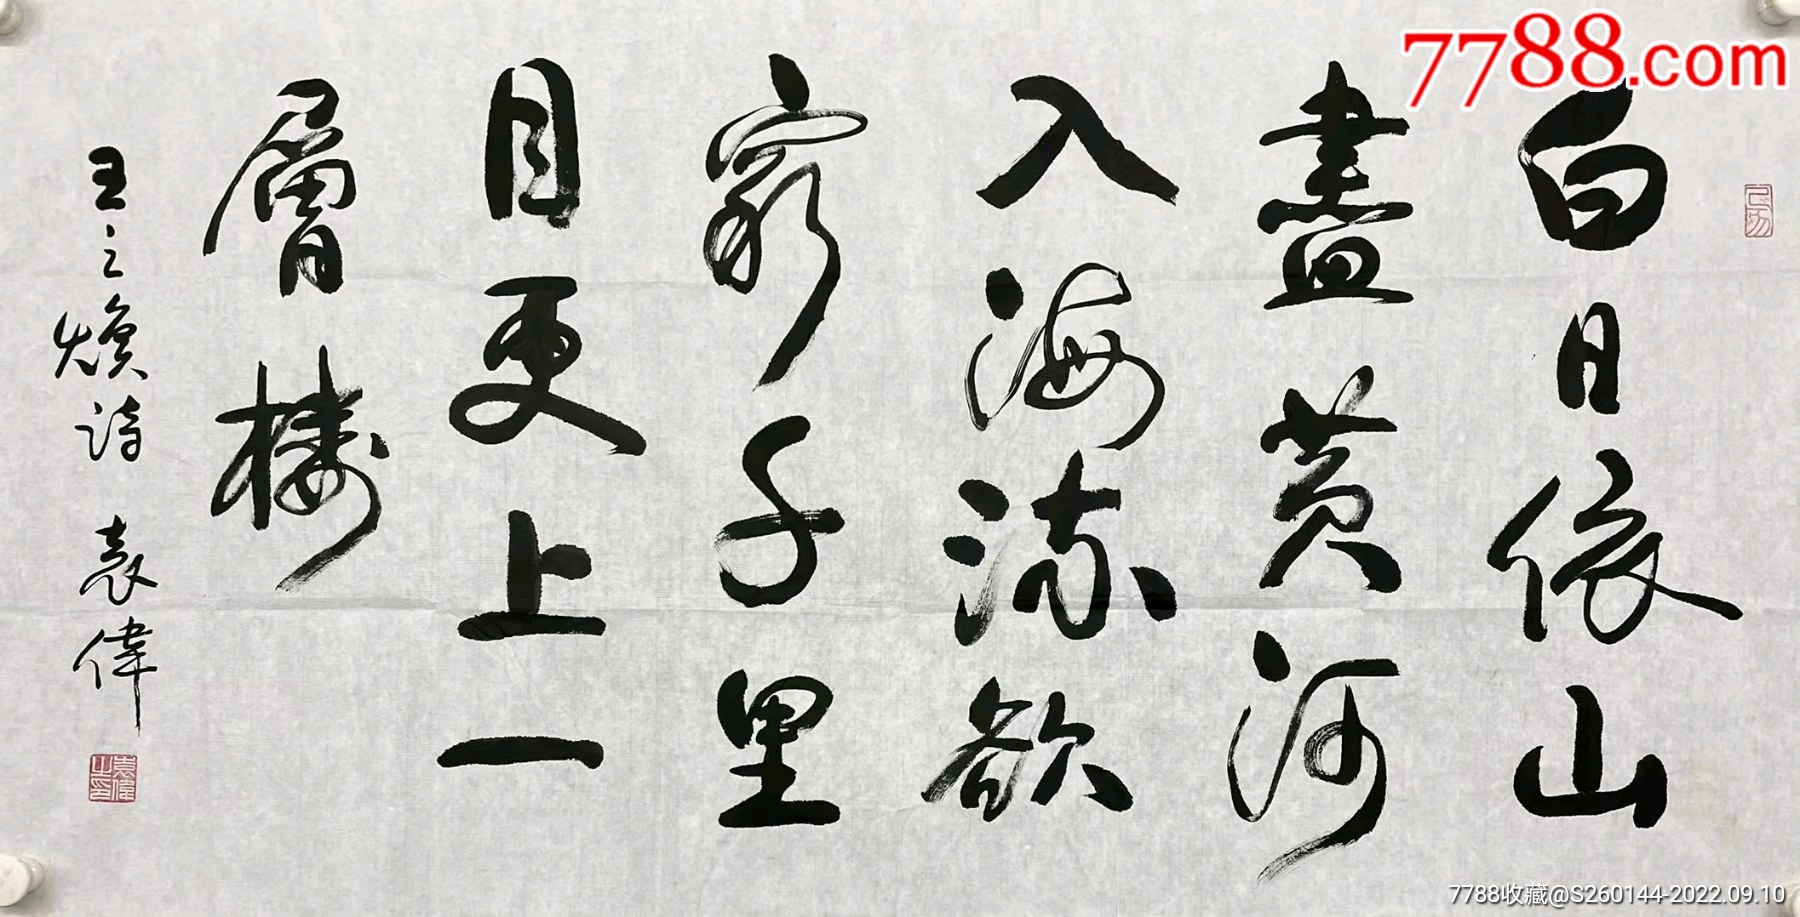 白日依山
盡黃河
入海流欲
窮千里
目更上一
層樓
王之煥詩 袁偉
袁偉之印
7788.com
7788收藏@S260144-2022.09.10